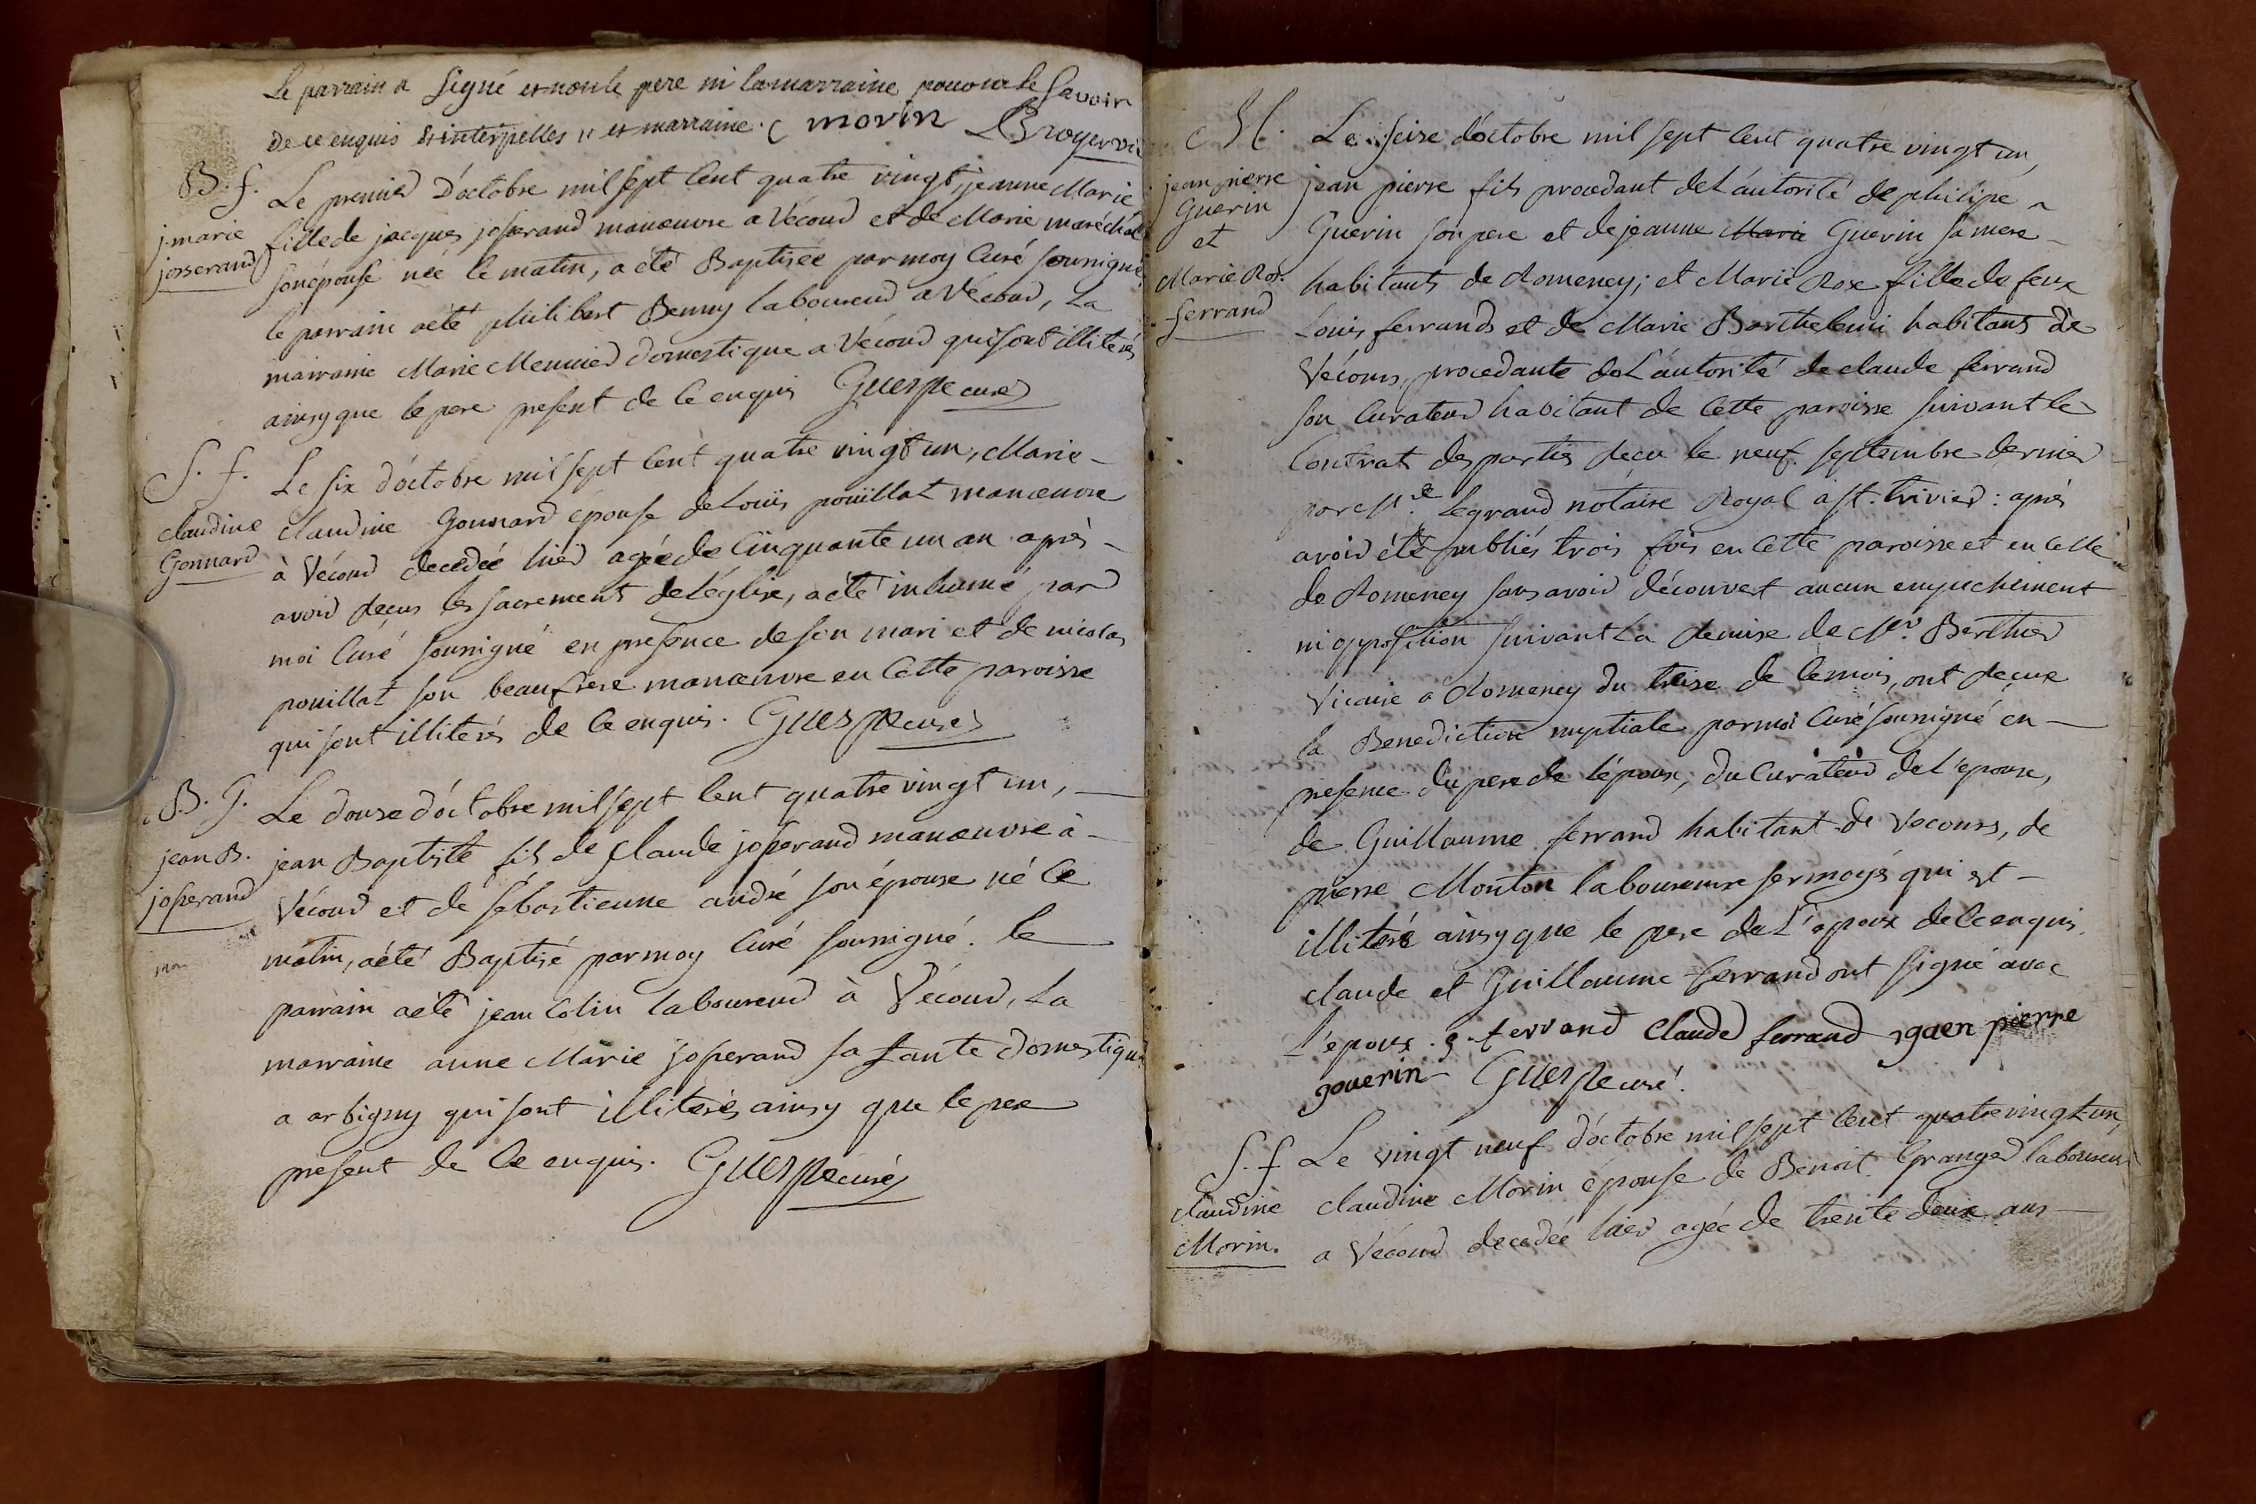 Le parrain a signé et non le pere ni la marraine pour ne le savoir
de ce enquis & interpelles et marraine. C morin Broyer vic
B. f.
j. marie
josserand
Le premier d'octobre mil sept cent quatre vingt, jeanne Marie
fille de jacques josserand manœuvre a Vécoud et de Marie maréchal
son épouse née le matin, a été Baptisée par moy Curé soussigné
le parrain a été philibert Benny laboureur a Vécoud, La
marraine Marie Meunier domestique a Vécoud qui sont illiterés
ainsy que le pere present de Ce enquis Guerpe curé
S. f.
claudine
Gonnard
Le six d'octobre mil sept Cent quatre vingt un, Marie
claudine Gonnard épouse de Louis pouillat manœuvre
à Vécoud decedée hier agée de Cinquante un an après
avoir reçus les sacrements de L'église, a été inhumé par
moi Curé soussigné en presence de son mari et de nicolas
pouillat son beaufrere manœuvre en Cette paroisse
qui sont illiterés de Ce enquis. Guerpe curé
B. G.
jean B.
josserand
Le douse d'octobre mil sept Cent quatre vingt un,
jean Baptiste fils de Claude josserand manœuvre à
Vécoud et de sébastienne andré son épouse né Ce
matin, a été Baptisé par moy Curé soussigné. le
parrain a été jean Colin laboureur à Vécoud, La
marraine anne Marie josserand sa tante domestique
a arbigny qui sont illiterés ainsy que le pere
present de Ce enquis. Guerpe curé
M.
jean pierre
Guerin
et
Marie Rose
ferrand
Le seise d'octobre mil sept Cent quatre vingt un,
jean pierre fils procedant de L'autorité de philipe
Guerin son pere et de jeanne Marie Guerin sa mere
habitants de Romeney; et Marie Rose fille de feux
Louis ferrand et de Marie Barthelemi habitans de
Vécours, procedante de L'autorité de claude ferrand
son Curateur habitant de Cette paroisse suivant le
Contrat des parties reçu le neuf septembre dernier
par Me. Legrand notaire Royal à st. trivier: après
avoir été publiés trois fois en Cette paroisse et en Celle
de Romeney sans avoir découvert aucun empechement
ni opposition suivant La remise de Mr. Berthier
Vicaire a Romeney du treise de Ce mois, ont reçue
la Benediction nuptiale par moi Curé soussigné en
presence du pere de l'époux, du Curateur de L'epouse,
de Guillaume ferrand habitant de Vecours, de
pierre Monton laboureur sermoyé qui est
illiteré ainsy que le pere de L'époux de Ce enquis.
claude et Guillaume ferrand ont signé avec
l'epoux. g ferrand Claude ferrand jgaen pierre
gouerin Guerpe curé.
S. f
claudine
Morin.
Le vingt neuf d'octobre mil sept Cent quatre vingt un,
claudine Morin épouse de Benoit Granger laboureur
a Vécoud decedée hier agée de trente deux ans